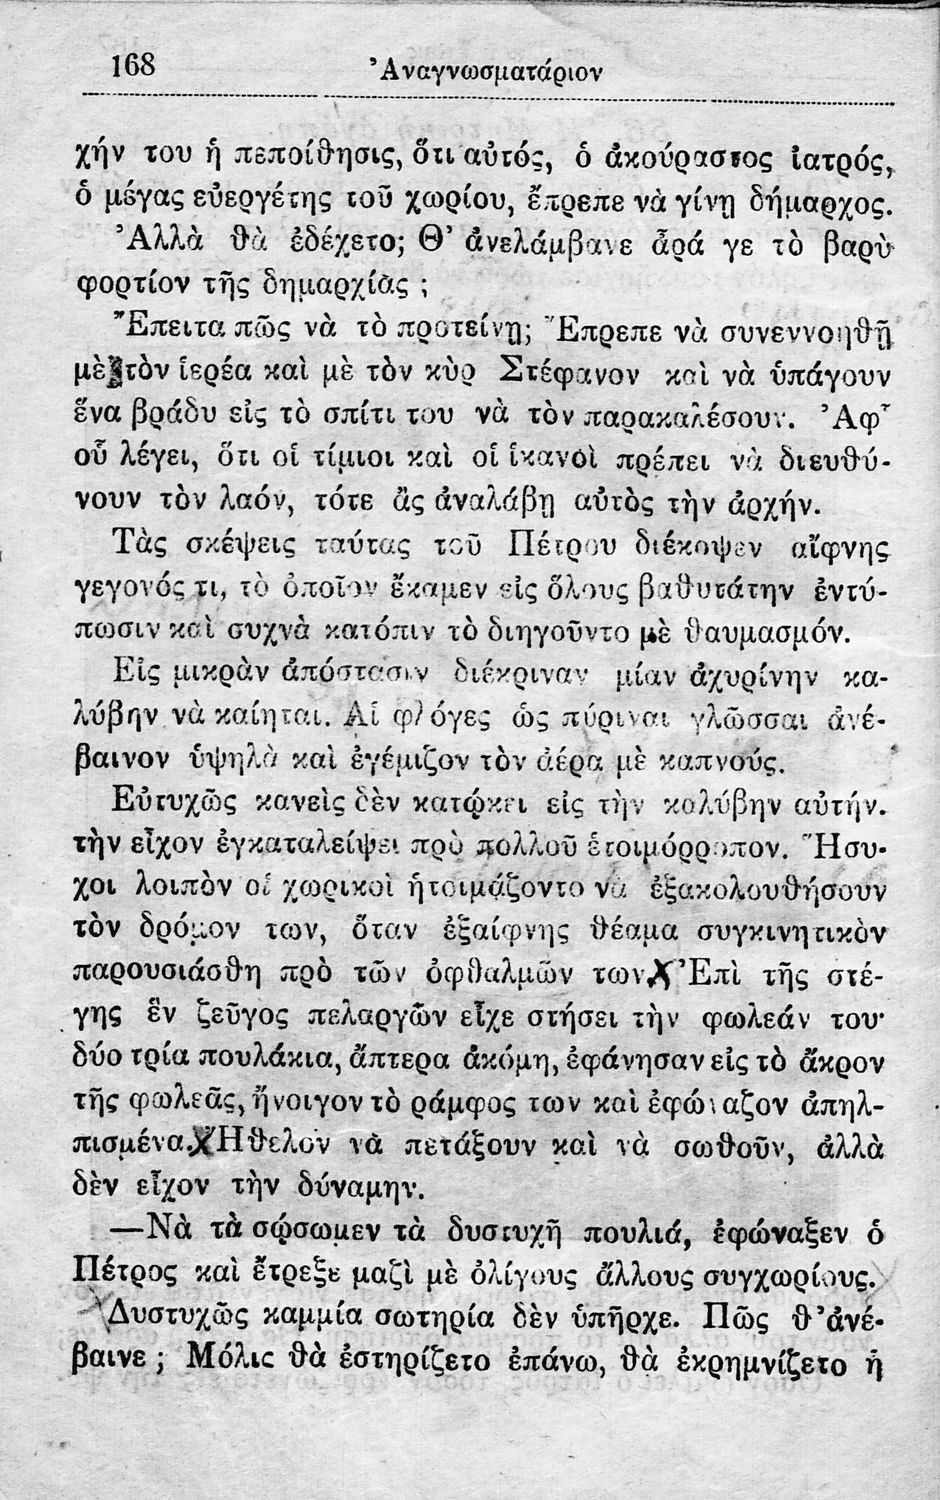 168 Ἀναγνωσματάριον
χήν του ἡ πεποίθησις, ὅτι αὐτός, ὁ ἀκούραστος ἰατρός,
ὁ μέγας εὐεργέτης τοῦ χωρίου, ἔπρεπε νὰ γίνῃ δήμαρχος.
Ἀλλὰ θὰ ἐδέχετο; Θ’ ἀνελάμβανε ἆρά γε τὸ βαρὺ
φορτίον τῆς δημαρχίας ;
Ἔπειτα πῶς νὰ τὸ προτείνῃ; Ἔπρεπε νὰ συνεννοηθῇ
μὲ τὸν ἱερέα καὶ μὲ τὸν κὺρ Στέφανον καὶ νὰ ὑπάγουν
ἕνα βράδυ εἰς τὸ σπίτι του νὰ τὸν παρακαλέσουν. Ἀφ’
οὗ λέγει, ὅτι οἱ τίμιοι καὶ οἱ ἱκανοὶ πρέπει νὰ διευθύ-
νουν τὸν λαόν, τότε ἂς ἀναλάβῃ αὐτὸς τὴν ἀρχήν.
Τὰς σκέψεις ταύτας τοῦ Πέτρου διέκοψεν αἴφνης
γεγονός τι, τὸ ὁποῖον ἔκαμεν εἰς ὅλους βαθυτάτην ἐντύ-
πωσιν καὶ συχνὰ κατόπιν τὸ διηγοῦντο μὲ θαυμασμόν.
Εἰς μικρὰν ἀπόστασιν διέκριναν μίαν ἀχυρίνην κα-
λύβην νὰ καίηται. Αἱ φλόγες ὡς πύριναι γλῶσσαι ἀνέ-
βαινον ὑψηλὰ καὶ ἐγέμιζον τὸν ἀέρα μὲ καπνούς.
Εὐτυχῶς κανεὶς δὲν κατῴκει εἰς τὴν καλύβην αὐτήν.
τὴν εἶχον ἐγκαταλείψει πρὸ πολλοῦ ἑτοιμόρροπον. Ἥσυ-
χοι λοιπὸν οἱ χωρικοὶ ἡτοιμάζοντο νὰ ἐξακολουθήσουν
τὸν δρόμον των, ὅταν ἐξαίφνης θέαμα συγκινητικὸν
παρουσιάσθη πρὸ τῶν ὀφθαλμῶν των Ἐπὶ τῆς στέ-
γης ἓν ζεῦγος πελαργῶν εἶχε στήσει τὴν φωλεάν του·
δύο τρία πουλάκια, ἄπτερα ἀκόμη, ἐφάνησαν εἰς τὸ ἄκρον
τῆς φωλεᾶς, ἤνοιγον τὸ ράμφος των καὶ ἐφώναζον ἀπηλ-
πισμένα. Ἤθελον νὰ πετάξουν καὶ νὰ σωθοῦν, ἀλλὰ
δὲν εἶχον τὴν δύναμην.
—Νὰ τὰ σώσωμεν τὰ δυστυχῆ πουλιά, ἐφώναξεν ὁ
Πέτρος καὶ ἔτρεξε μαζὶ μὲ ὀλίγους ἄλλους συγχωρίους.
Δυστυχῶς καμμία σωτηρία δὲν ὑπῆρχε. Πῶς θ’ ἀνέ-
βαινε ; Μόλις θὰ ἐστηρίζετο ἐπάνω, θὰ ἐκρημνίζετο ἡ